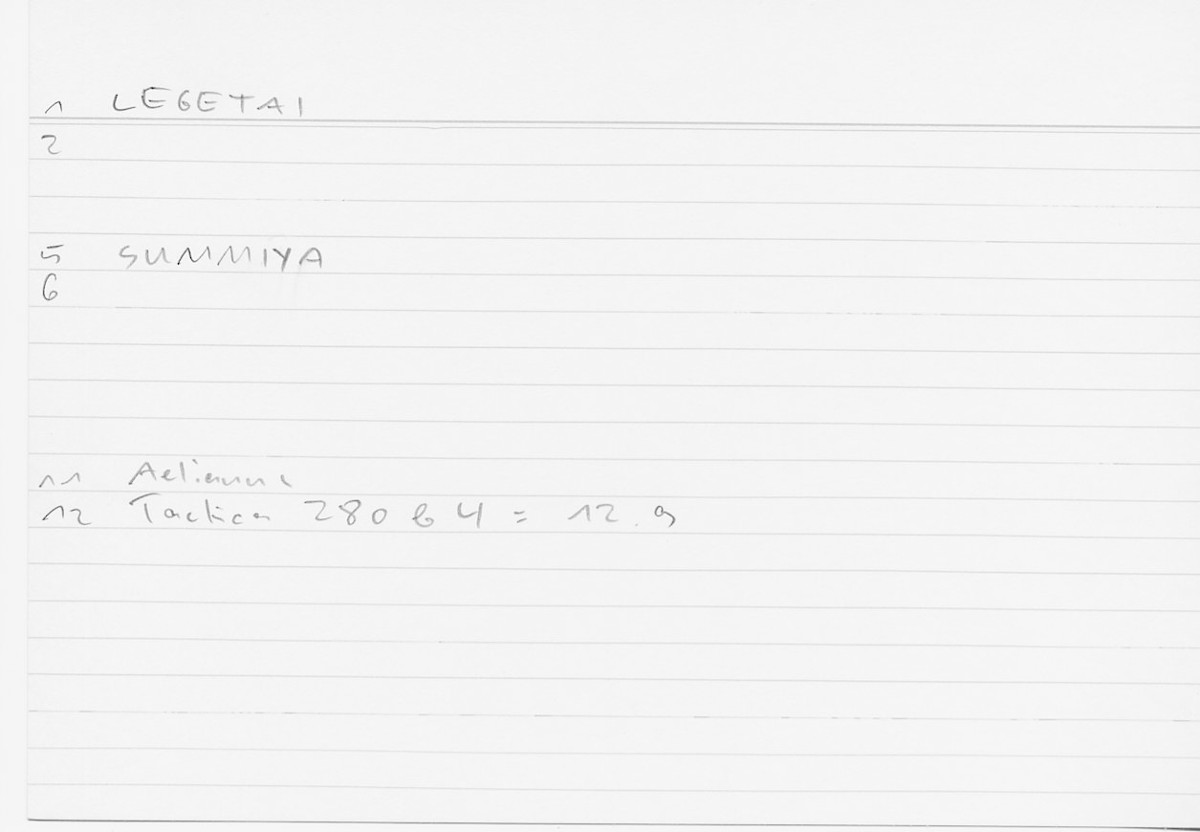 1 LEGETAI
2
5 SUMMIYA
6
11 Aelianus
12 Tactica 280 b 4 = 12.9